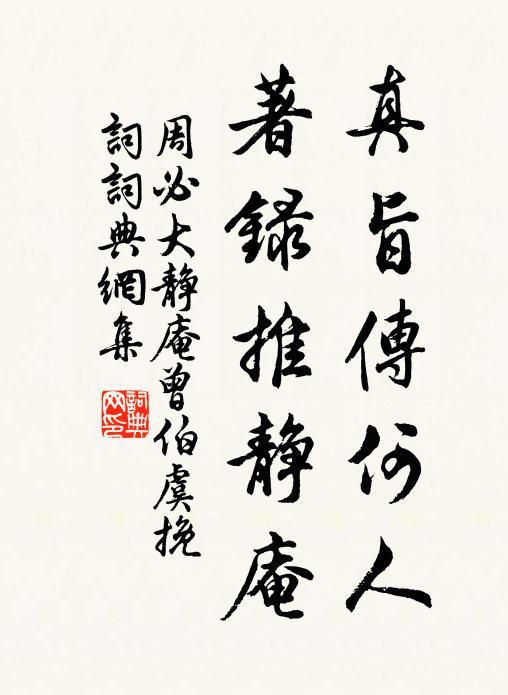 真旨傳何人
著録推静庵
周必大静庵曾伯虞挽
詞詞典網集
詞典网印